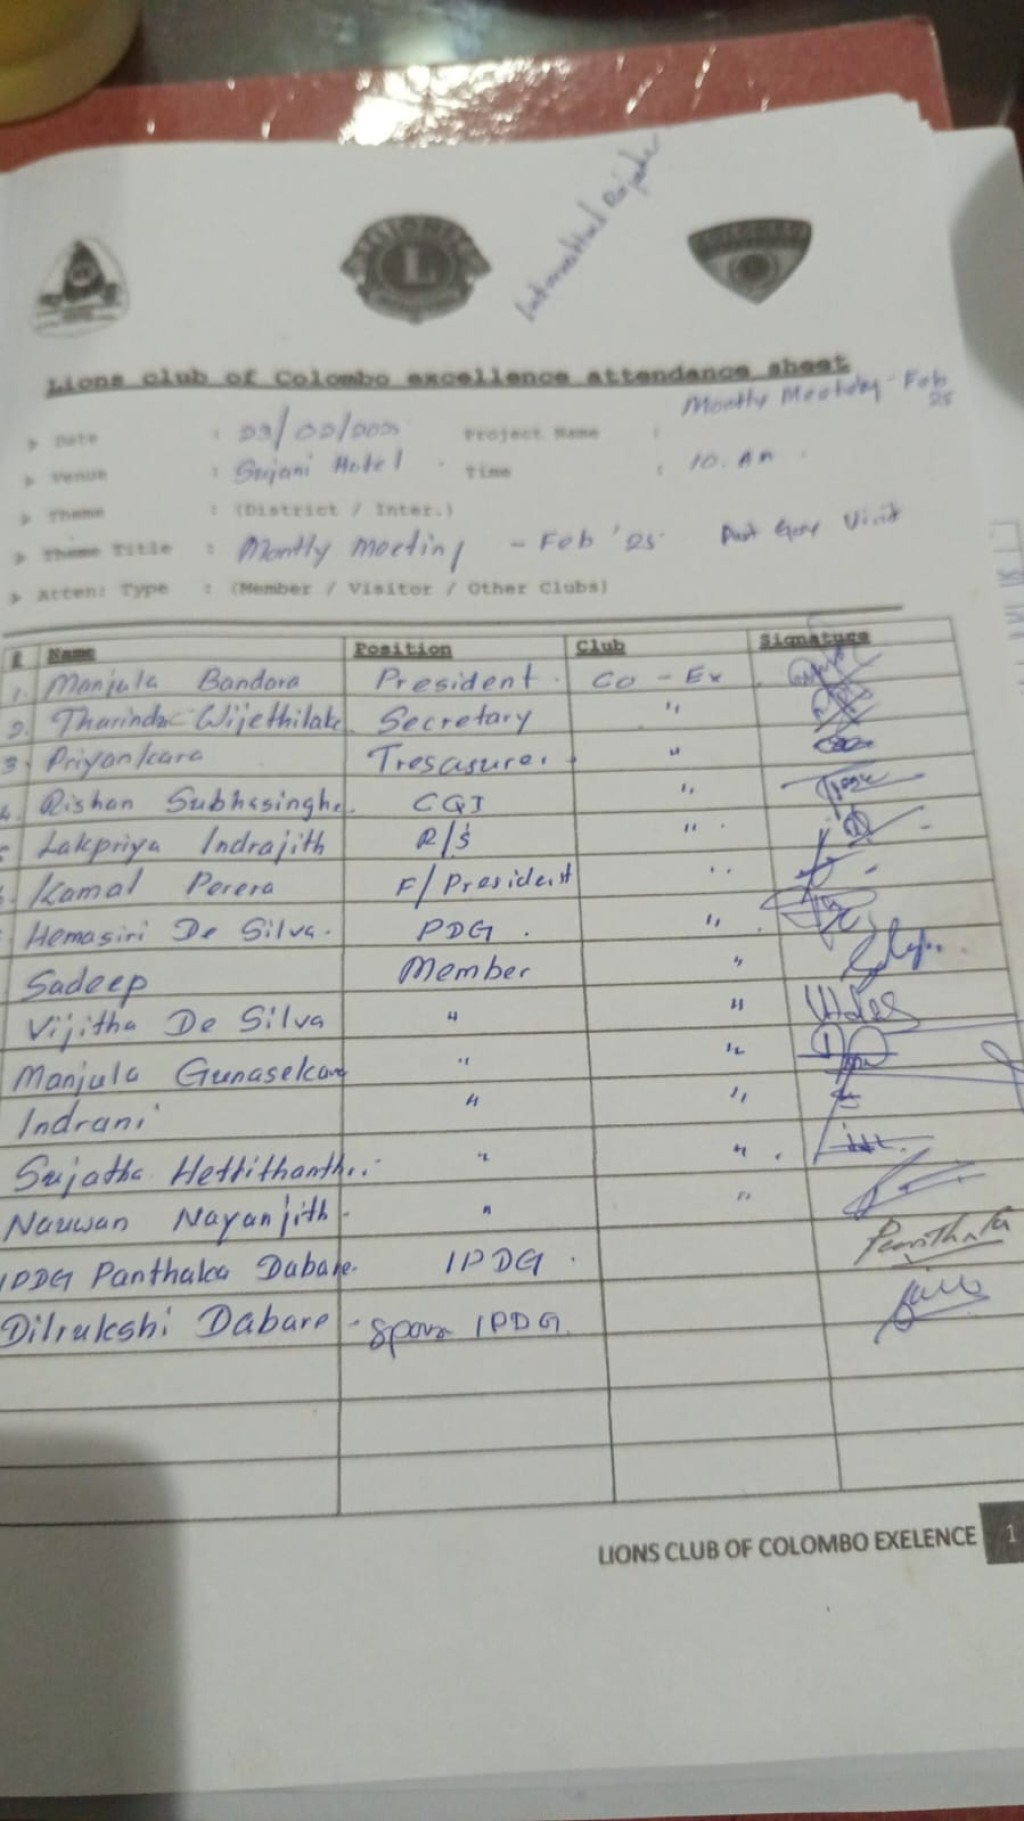 Lions club of Colombo excellence attendance sheet
Date : 23/02/2025 Project Name : Monthy Meeting - Feb 25
Venue : Sujani Hotel Time : 10. AM
Theme : (District / Inter.)
Theme Title : Montly Moeting - Feb '25 Visit
Atten: Type : (Member / Visitor / Other Clubs)
# Name Position Club Signature
1. Manjula Bandara President Co - Ex
2. Tharindu Wijethilake Secretary "
3. Priyankara Tresasurer "
4. Rishan Subhasinghe. CQI "
Lakpriya Indrajith R/S "
Kamal Perera F/President "
Hemasiri De Silva. PDG. "
Sadeep Member "
Vijitha De Silva " "
Manjula Gunasekara " "
Indrani " "
Sujatha Hettithanthri " "
Nauwan Nayanjith " "
IPDG Panthaka Dabare. IPDG.
Dilrukshi Dabare - IPDG.
LIONS CLUB OF COLOMBO EXELENCE 1